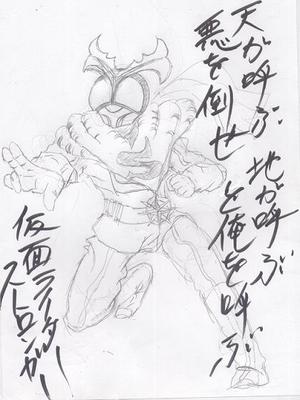 天が呼ぶ 地が呼ぶ
悪を倒せ と俺を呼ぶ
仮面ライダー
ストロンガー